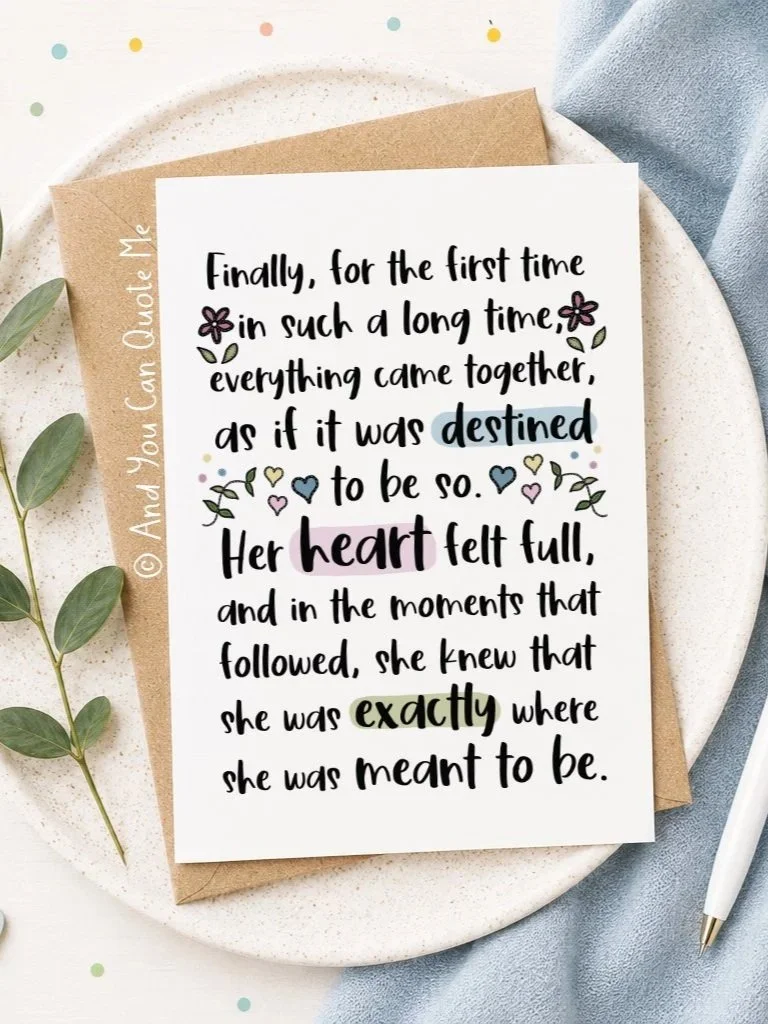 Finally, for the first time
in such a long time,
everything came together,
as if it was destined
to be so.
Her heart felt full,
and in the moments that
followed, she knew that
she was exactly where
she was meant to be.
© And You Can Quote Me